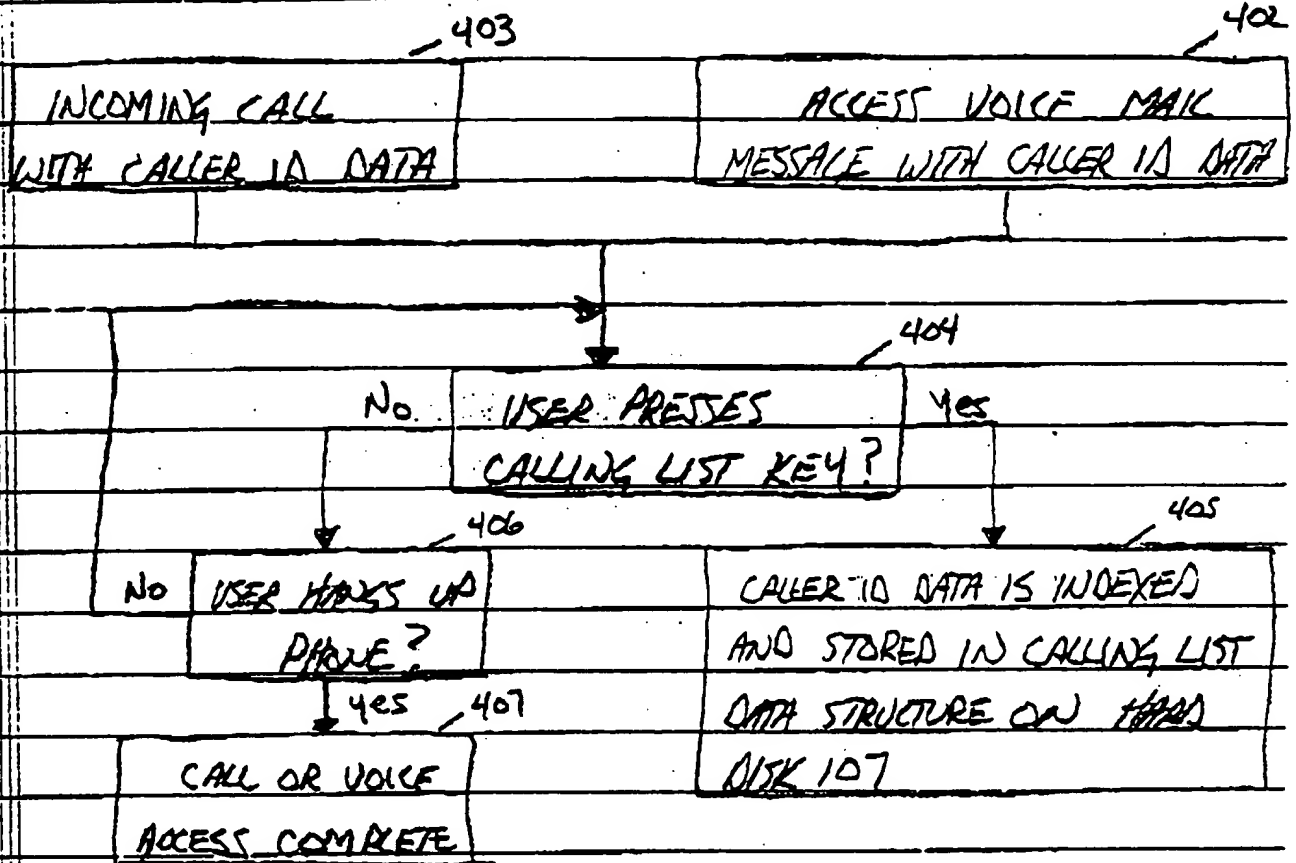 403
INCOMING CALL
WITH CALLER ID DATA
402
ACCESS VOICE MAIL
MESSAGE WITH CALLER ID DATA
404
No
USER PRESSES
CALLING LIST KEY?
Yes
406
No
USER HANGS UP
PHONE?
yes
405
CALLER ID DATA IS INDEXED
AND STORED IN CALLING LIST
DATA STRUCTURE ON HARD
DISK 107
407
CALL OR VOICE
ACCESS COMPLETE